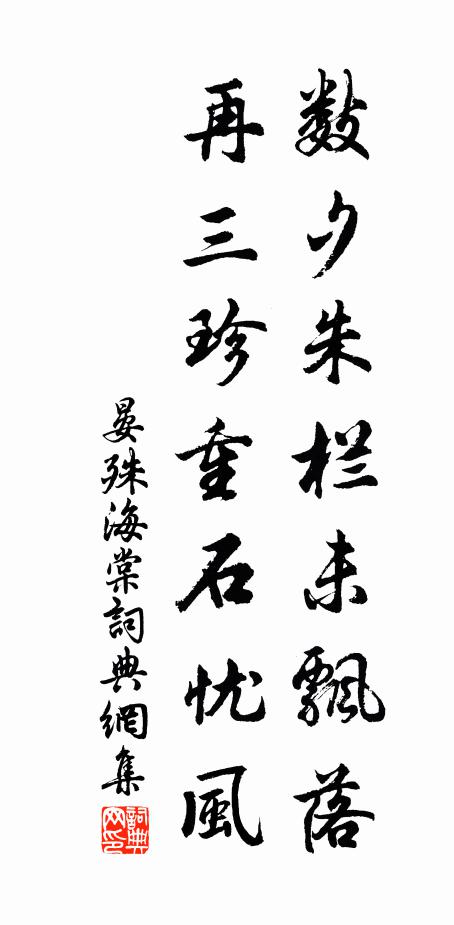 数夕朱栏未飘落
再三珍重石忧風
晏殊海棠詞典網集
詞典
网印